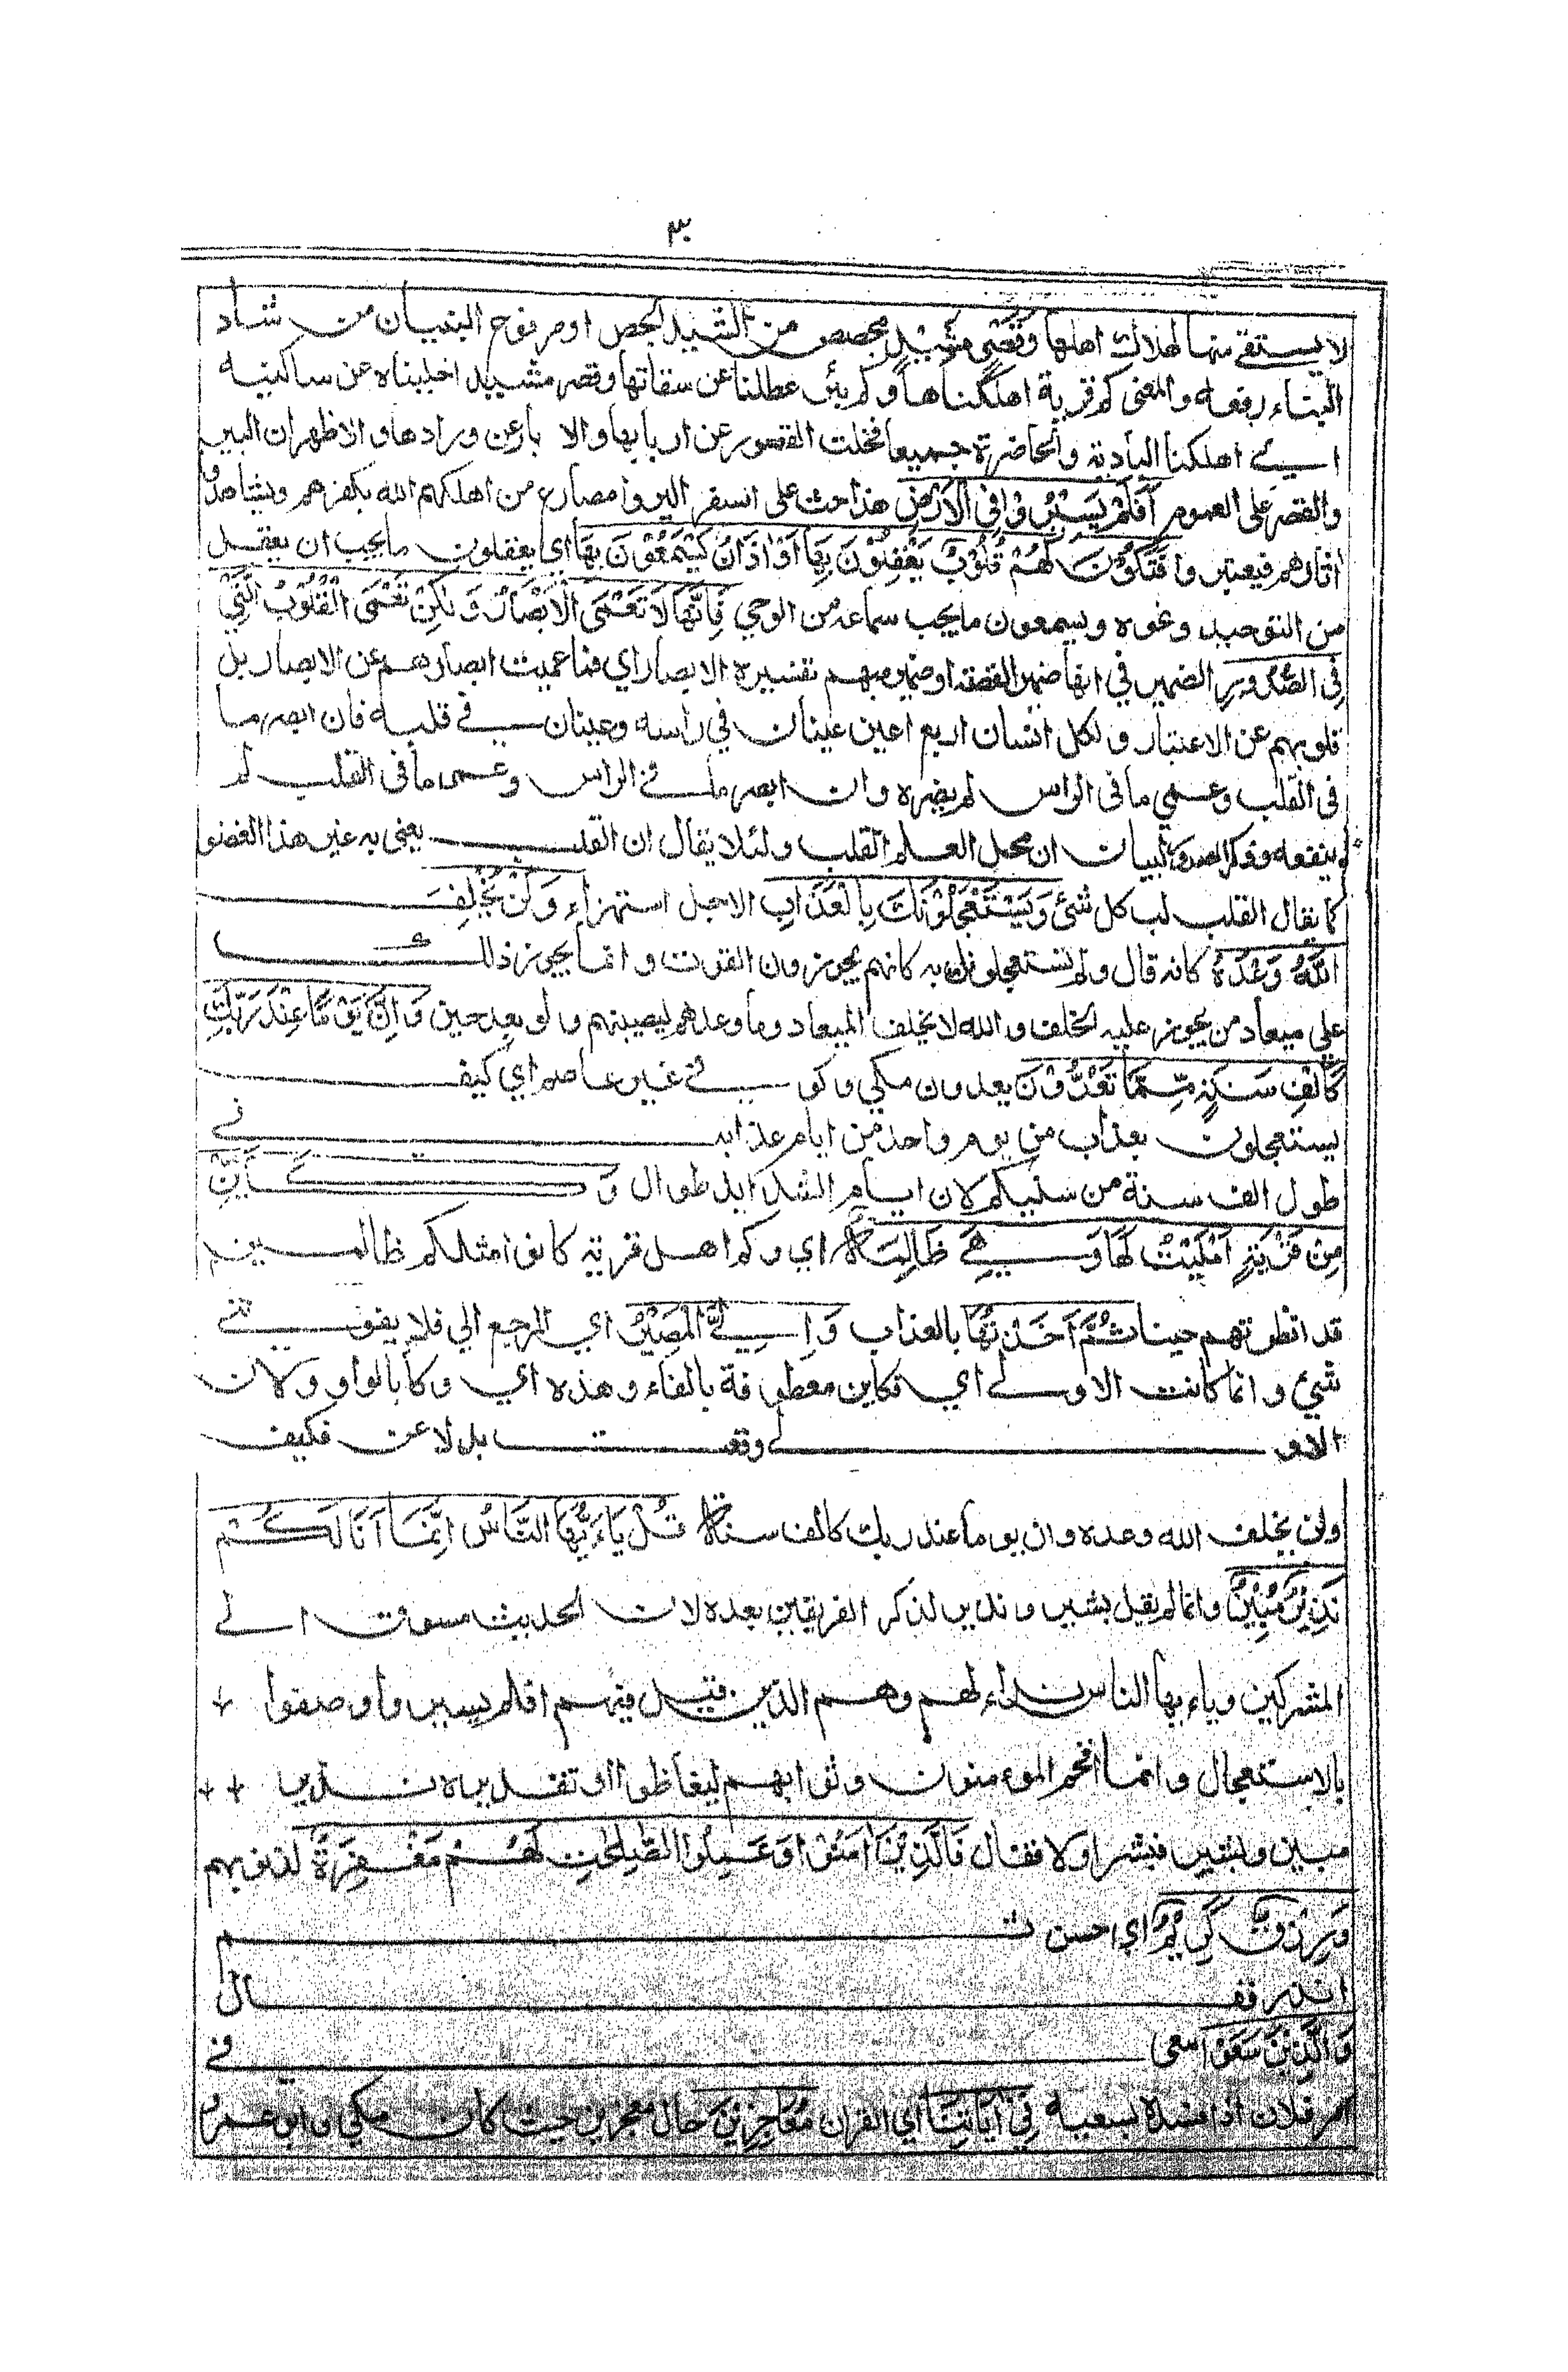 ٣
لا يستقى منها لهلاك اهلها وقصر مشيد مجصص من الشيد الجص او مرفوع البنيان من شاد
البناء رفعه والمعنى كم قرية اهلكناها وكم بئر عطلنا عن سقاتها وقصر مشيد اخليناه عن ساكنيه
اي اهلكنا البادية والحاضرة جميعا فخلت القصور عن اربابها والابار عن ورادها والاظهر ان البير
والقصر على العموم اَفَلَمْ يَسِيْرُوْا فِى الْاَرْضِ هذا حث على السفر ليروا مصارع من اهلكهم الله بكفرهم ويشاهدوا
اثارهم فيعتبروا فَتَكُوْنَ لَهُمْ قُلُوْبٌ يَعْقِلُوْنَ بِهَا اَوْ اٰذَانٌ يَّسْمَعُوْنَ بِهَا اي يعقلون ما يجب ان يعقل
من التوحيد ونحوه ويسمعون ما يجب سماعه من الوحي فَاِنَّهَا لَا تَعْمَى الْاَبْصَارُ وَلٰكِنْ تَعْمَى الْقُلُوْبُ الَّتِيْ
فِى الصُّدُوْرِ الضمير في انها ضمير القصة او ضمير مبهم تفسيره الابصار اي فما عميت ابصارهم عن الابصار بل
قلوبهم عن الاعتبار ولكل انسان اربع اعين عينان في راسه وعينان في قلبه فان ابصر ما
فى القلب وعمي ما فى الراس لم يضره وان ابصر ما في الراس وعمى ما فى القلب لم
ينفعه وذكر الصدور لبيان ان محل العلم القلب ولئلا يقال ان القلب يعنى به غير هذا العضو
كما يقال القلب لب كل شئ وَيَسْتَعْجِلُوْنَكَ بِالْعَذَابِ الاجل استهزاء وَلَنْ يُّخْلِفَ
اللّٰهُ وَعْدَهٗ كانه قال ولم يستعجلونك به كانهم يجوزون الفوت وانما يجوز ذلك
على ميعاد من يجوز عليه الخلف والله لا يخلف الميعاد وما وعدهم ليصيبنهم ولو بعد حين وَاِنَّ يَوْمًا عِنْدَ رَبِّكَ
كَاَلْفِ سَنَةٍ مِّمَّا تَعُدُّوْنَ يعدون مكي وكوفي غير عاصم اي كيف
يستعجلون بعذاب من يوم واحد من ايام عذابه في
طول الف سنة من سنيكم لان ايام الشدايد طوال وَكَاَيِّنْ
مِنْ قَرْيَةٍ اَمْلَيْتُ لَهَا وَهِيَ ظَالِمَةٌ اي وكم اهل قرية كانوا مثلكم ظالمين
قد انظرتهم حينا ثُمَّ اَخَذْتُهَا بالعذاب وَاِلَيَّ الْمَصِيْرُ اي المرجع الي فلا يفوتني
شيئ وانما كانت الاولى اي فكاين معطوفة بالفاء وهذه اي وكا بالواو ولان
الاولى وقعت بدلا عن فكيف
ولن يخلف الله وعده وان يوما عند ربك كالف سنة قُلْ يَاءَيُّهَا النَّاسُ اِنَّمَا اَنَا لَكُمْ
نَذِيْرٌ مُّبِيْنٌ وانما لم يقل بشير ونذير لذكر الفريقين بعده لان الحديث مسوق الى
المشركين وياءيها الناس نداء لهم وهم الذين قيل فيهم افلم يسيروا ووصفوا
بالاستعجال وانما اقحم المومنون وثوابهم ليغاظوا او تقديره نذير
مبين وبشير فبشر اولا فقال فَالَّذِيْنَ اٰمَنُوْا وَعَمِلُوا الصّٰلِحٰتِ لَهُمْ مَغْفِرَةٌ لذنوبهم
وَرِزْقٌ كَرِيْمٌ اي حسن ثم
انذر فقال
وَالَّذِيْنَ سَعَوْا سعى في
امر فلان اذا افسده بسعيه فِيْ اٰيَاتِنَا اي القران مُعَاجِزِيْنَ حال معجزين حيث كان مكي وابو عمرو